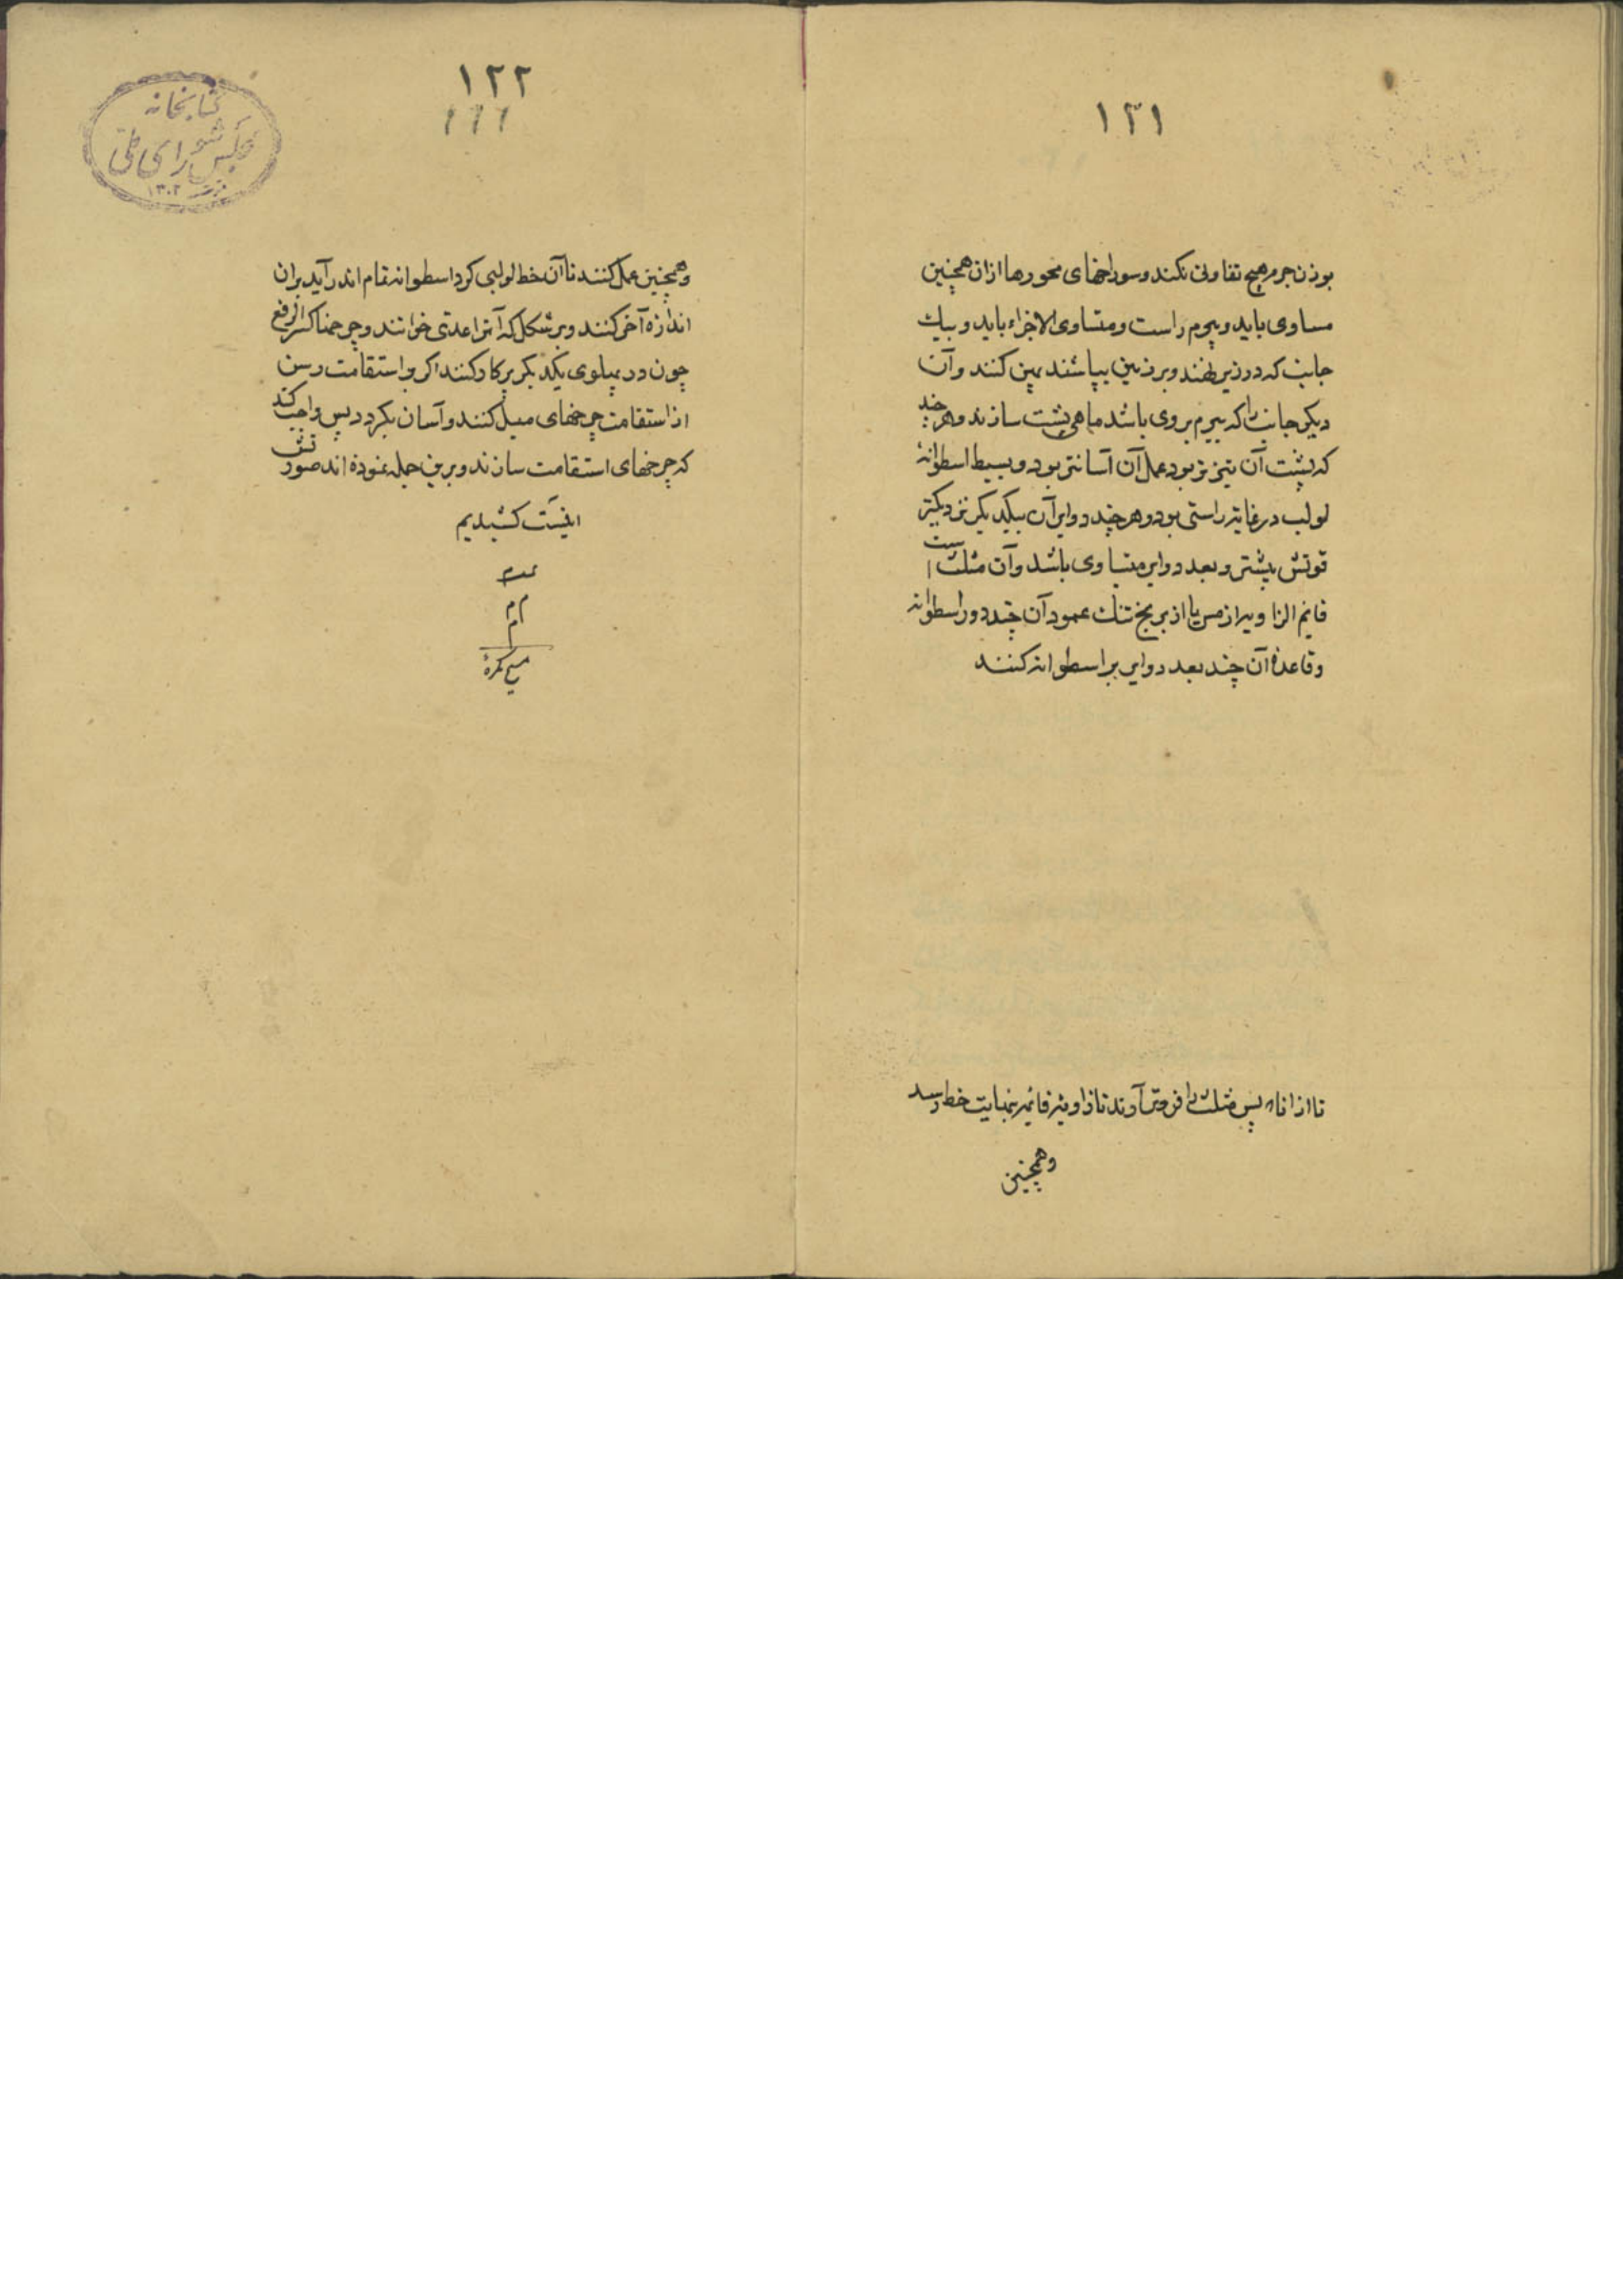 ۱۲۱
بوزن جرم هیچ تفاوتی نکند و سوراخهای محورها ازان همچنین
مساوی باید و بیرم راست و متساوی الاجزاء باید و بیک
جانب که در زیر نهند و بر زمین بپاشند پهن کنند و آن
دیگر جانب را که بیرم بروی باشد ماهی پشت سازند و هر چند
که پشت آن تیزتر بود عمل آن آسانتر بود و بسیط اسطوانهٔ
لولب در غایة راستی بود و هر چند دوایر آن بیکدیکر نزدیکتر
قوتش بیشتر و بعد دوایر متساوی باشد و آن مثلث است
قایم الزاویه از مس یا از برنج تنک عمود آن چند دور اسطوانه
و قاعدهٔ آن چند بعد دوایر بر اسطوانه کنند
تا ازانا پس مثلث را فروتر آورند تا زاویهٔ قایمه بنهایت خط رسد
و همچنین
۱۲۲
۱۲۲
کتابخانه
مجلس شورای ملی
۱۳۰۲
و همچنین عمل کنند تا آن خط لولبی کرد اسطوانه تمام اندر آید بران
اندازه آخر کنند و بر شکل که آنرا عدتی خوانند و چرخها کثیر الرفع
چون در پهلوی یکدیکر برکار کنند اکر بر استقامت رسن
از استقامت چرخهای میل کنند و آسان بکردد پس واجب کند
که چرخهای استقامت سازند و برین جمله نموده اند صورتش
اینست کشیدیم
تمت
م م م